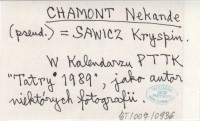 CHAMONT Nekande
(pseud.) = SAWICZ Kryspin.
W Kalendarzu PTTK
"Tatry 1989", jako autor
niektórych fotografii.